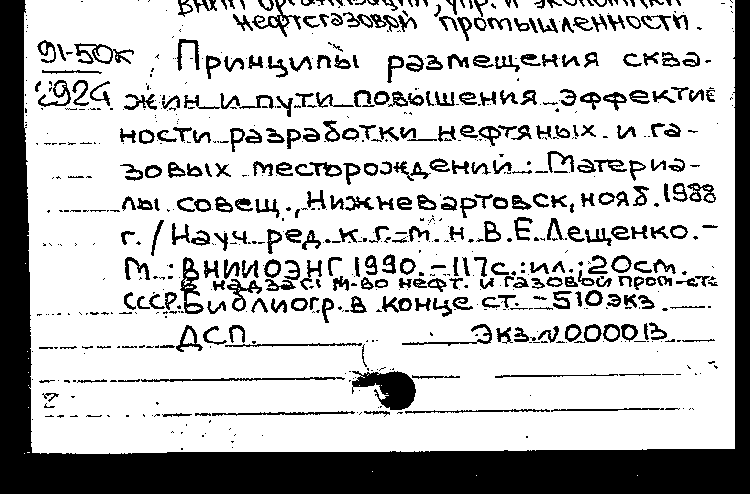 ВНИИ организации, упр. и экономики
нефтегазовой промышленности.
91-50к Принципы размещения сква-
2924 жин и пути повышения эффектив
ности разработки нефтяных и га-
зовых месторождений: Материа-
лы совещ., Нижневартовск, нояб. 1988
г. / Науч. ред. к. г.-м. н. В. Е. Лещенко. -
М. : ВНИИОЭНГ 1990. - 117 с. : ил. ; 20 см.
В надзаг: М-во нефт. и газовой пром-сти
СССР. Библиогр. в конце ст. - 510 экз.
ДСП. Экз. N 000013
2